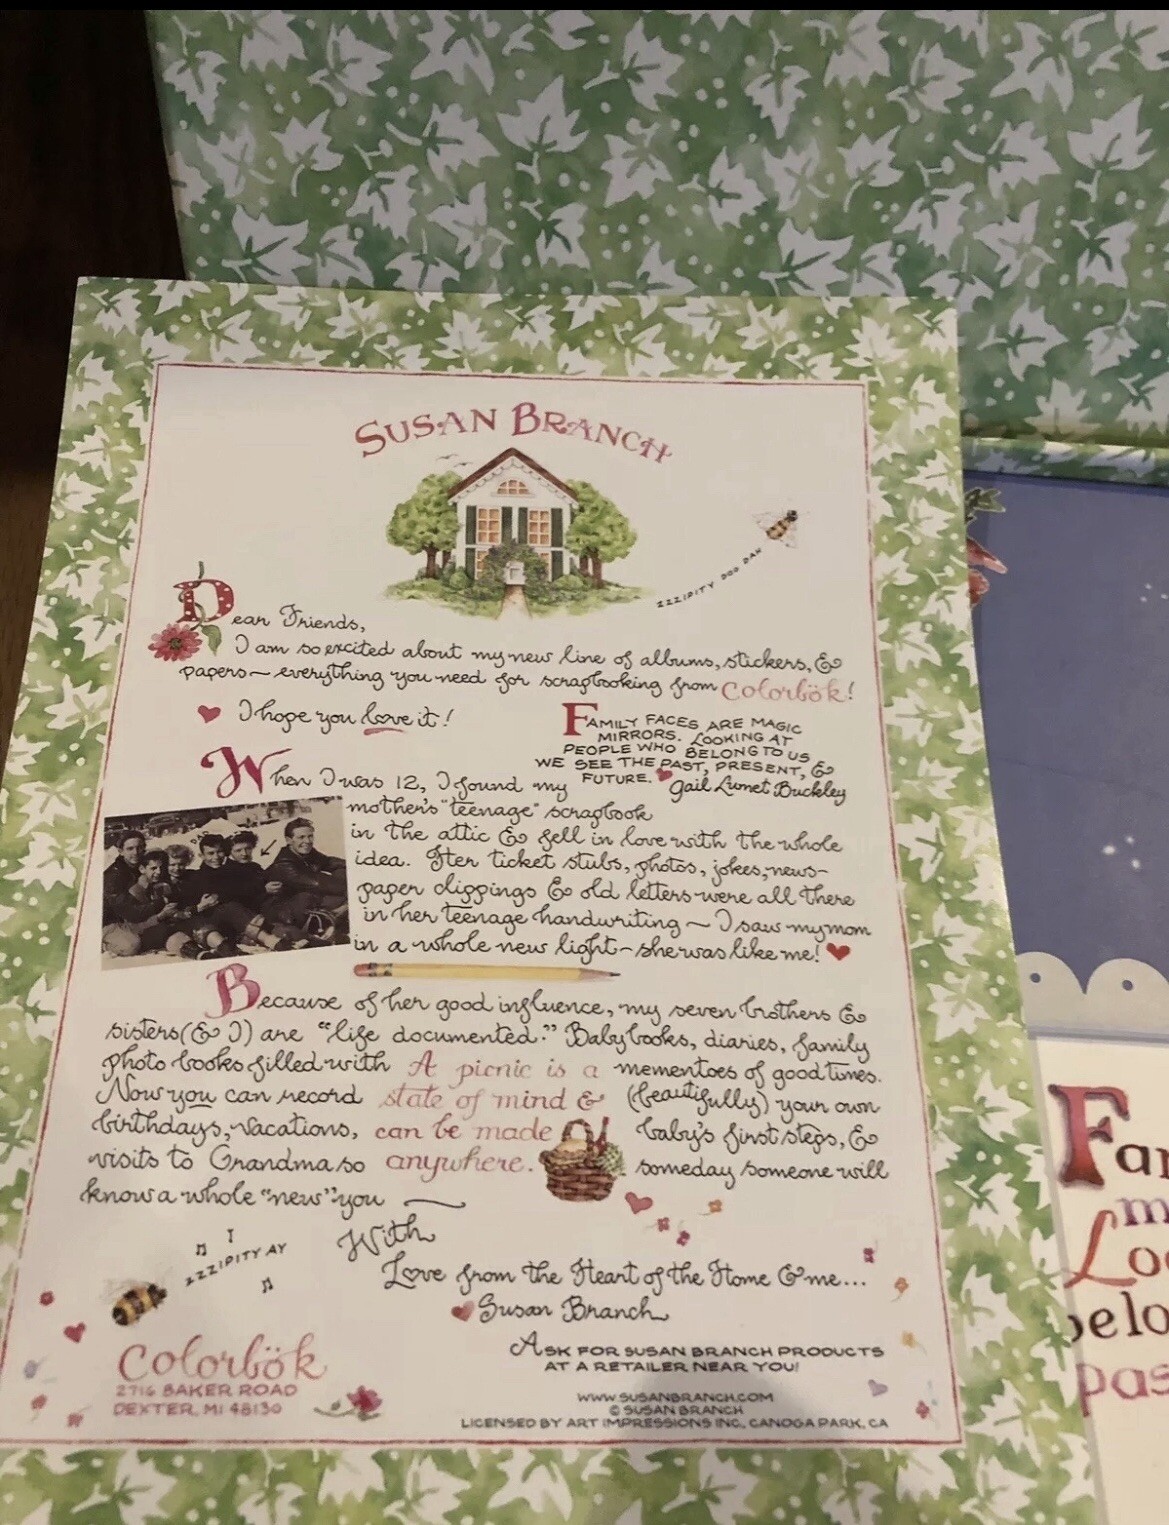 SUSAN BRANCH
ZZZIPITY DOO DAH
Dear Friends,
I am so excited about my new line of albums, stickers, &
papers — everything you need for scrapbooking from Colorbök!
I hope you love it!
FAMILY FACES ARE MAGIC
MIRRORS. LOOKING AT
PEOPLE WHO BELONG TO US
WE SEE THE PAST, PRESENT, &
FUTURE. Gail Lumet Buckley
When I was 12, I found my
mother's "teenage" scrapbook
in the attic & fell in love with the whole
idea. Her ticket stubs, photos, jokes, news-
paper clippings & old letters were all there
in her teenage handwriting ~ I saw my mom
in a whole new light ~ she was like me!
Because of her good influence, my seven brothers &
sisters (& I) are "life documented." Baby books, diaries, family
photo books filled with mementoes of good times.
Now you can record (beautifully) your own
birthdays, vacations, baby's first steps, &
visits to Grandma so someday someone will
know a whole "new" you
A picnic is a
state of mind &
can be made
anywhere.
With
Love from the Heart of the Home & me...
Susan Branch
ZZZIPITY AY
Colorbök
2716 BAKER ROAD
DEXTER, MI 48130
ASK FOR SUSAN BRANCH PRODUCTS
AT A RETAILER NEAR YOU!
WWW.SUSANBRANCH.COM
© SUSAN BRANCH
LICENSED BY ART IMPRESSIONS INC., CANOGA PARK, CA
Fa
m
Lo
belo
pas